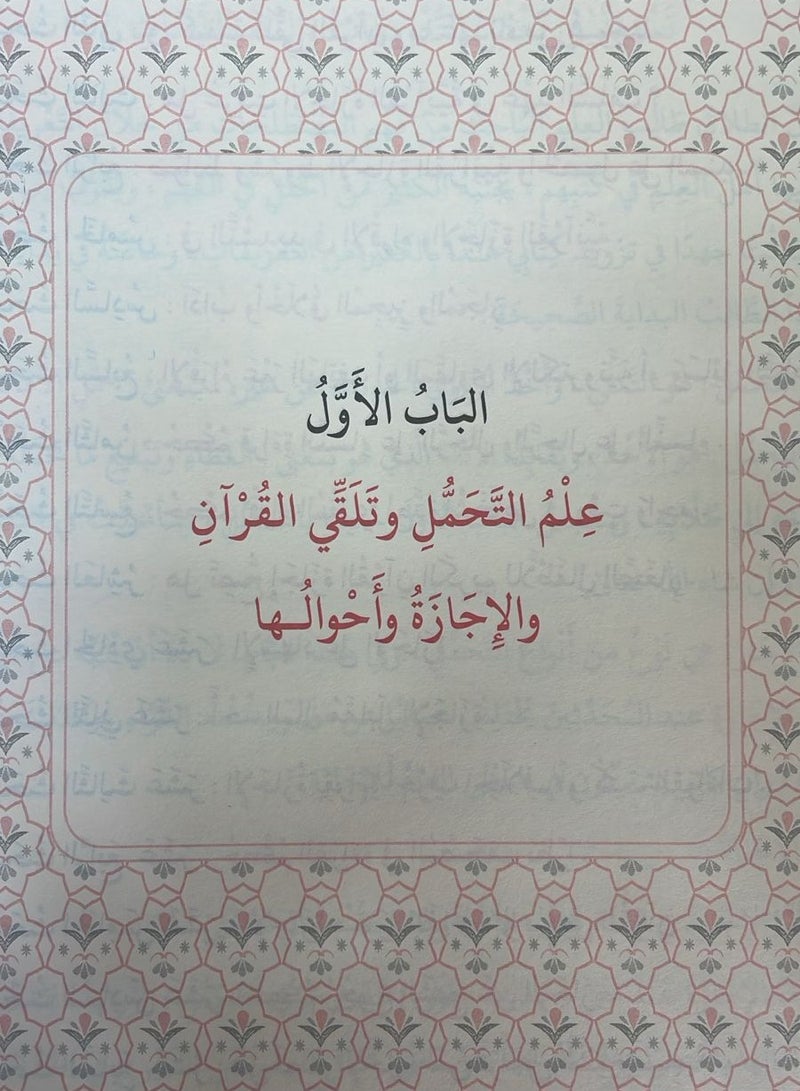 البَابُ الأَوَّلُ
عِلْمُ التَّحَمُّلِ وتَلَقِّي القُرْآنِ
والإِجَازَةُ وأَحْوالُـها